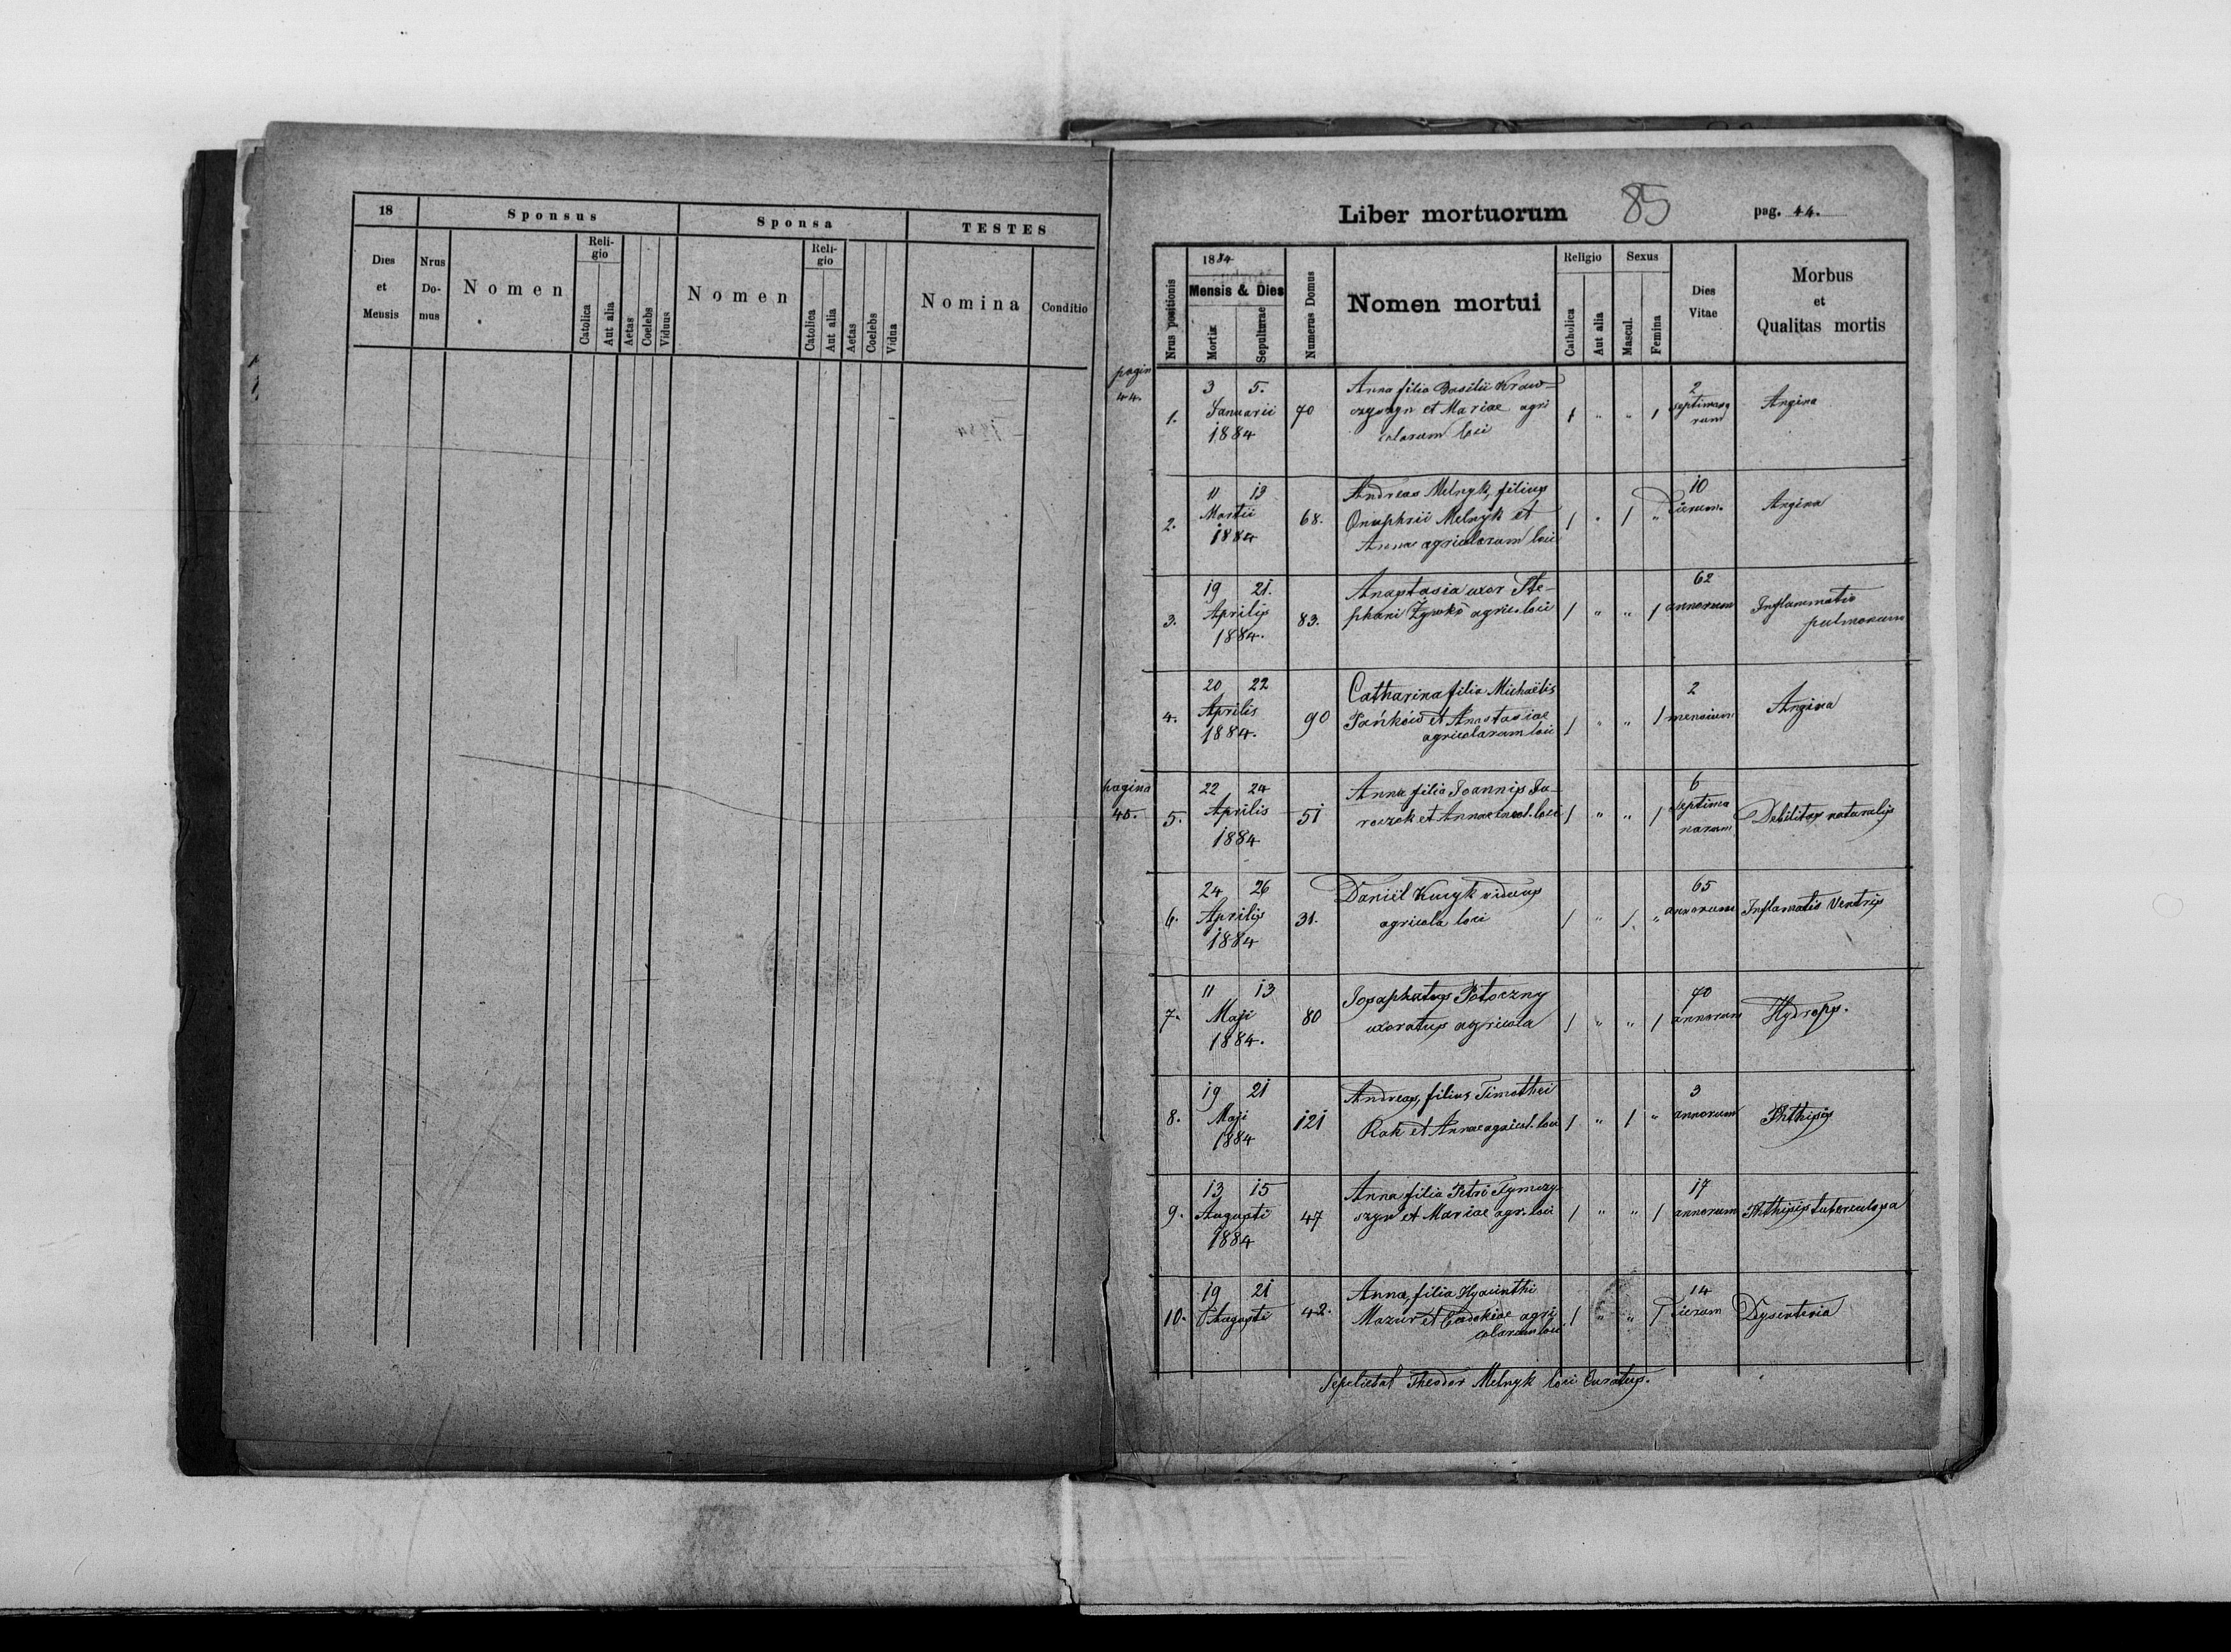 18
Sponsus
Sponsa
TESTES
Dies et Mensis
Nrus Do- mus
Nomen
Reli- gio
Catolica
Aut alia
Aetas
Coelebs
Viduus
Nomen
Reli- gio
Catolica
Aut alia
Aetas
Coelebs
Vidua
Nomina
Conditio
Liber mortuorum
85
pag. 44.
Nrus positionis
1884
Mensis & Dies
Mortis
Sepulturae
Numerus Domus
Nomen mortui
Religio
Catholica
Aut alia
Sexus
Mascul.
Femina
Dies Vitae
Morbus
et
Qualitas mortis
pagin
44.
3 5. Anna filia Basilii Kraw- 2
1. Januarii 70 czyszyn et Mariae agri 1 " " 1 septimana Angina
1884 colarum loci rum
11 13 Andreas Melnyk, filius 10
2. Martii 68. Onuphrii Melnyk et 1 " 1 " Dierum Angina
1884 Annae agricolarum loci
19 21. Anastasia uxor Ste- 62
3. Aprilis 83. phani Zynkó agric. loci 1 " " 1 annorum Inflammatio
1884. pulmonum
20 22 Catharina filia Michaëlis 2
4. Aprilis 90 Pańków et Anastasiae 1 " " 1 mensium Angina
1884. agricolarum loci
pagina
45.
22 24 Anna filia Joannis Ja- 6
5. Aprilis 51 roczek et Annae loci 1 " " 1 septima Debilitas naturalis
1884 narum
24 26 Daniël Kucyk viduus 65
6. Aprilis 31. agricola loci 1 " 1. " annorum Inflamatio Ventris
1884
11 13 Josaphatus Potoczny 70
7. Maji 80 uxoratus agricola 1 " " 1 annorum Hydrops.
1884.
19 21 Andreas, filius Timothei 3
8. Maji 121 Rak et Annae agricol. loci 1 " 1 " annorum Phthisis
1884
13 15 Anna filia Petri Tymczy- 17
9. Augusti 47 szyn et Mariae agr. loci 1 " " 1 annorum Phthisis tuberculosa
1884
19 21 Anna, filia Hyacinthi 14
10. Augusti 42. Mazur et Eudokiae agri 1 " " 1 Dierum Dysenteria
colarum loci
Sepeliebat Theodor Melnyk loci Curatus.